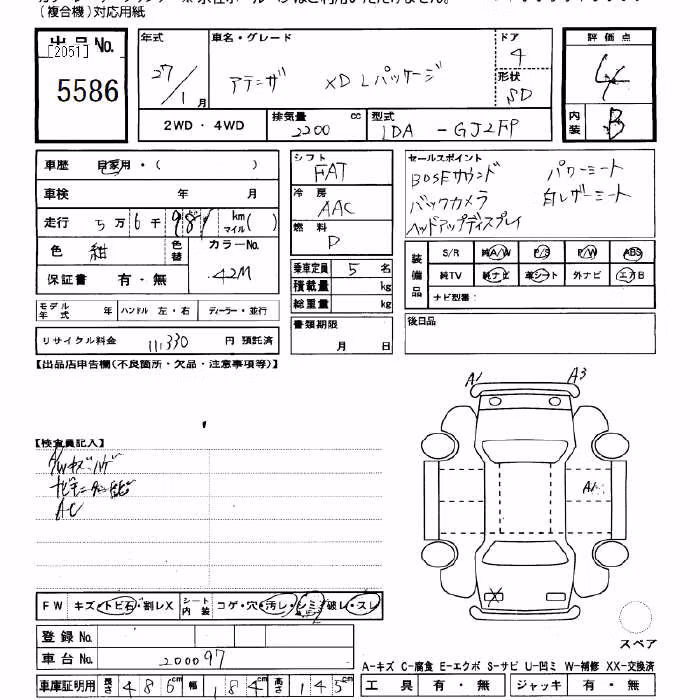 (複合機)対応用紙
出品No.
[2051]
5586
年式
27/1月
車名・グレード
アテンザ XD Lパッケージ
ドア
4
形状
SD
評価点
4
内装
B
2WD・4WD
排気量
2200 cc
型式
LDA-GJ2FP
車歴 自家用・( )
車検 年 月
走行 5万6千981 km マイル( )
色 紺
色替
カラーNo.
42M
保証書 有・無
モデル年式 年
ハンドル 左・右
ディーラー・並行
リサイクル料金 11,330 円 預託済
シフト
FAT
冷房
AAC
燃料
D
乗車定員 5 名
積載量 kg
総重量 kg
書類期限
月 日
セールスポイント
BOSEサウンド パワーシート
バックカメラ 白レザーシート
ヘッドアップディスプレイ
装備品
S/R 純A/W P/S P/W ABS
純TV 純ナビ 革シート 外ナビ エアB
ナビ型番:
後日品
【出品店申告欄(不良箇所・欠品・注意事項等)】
【検査員記入】
A/Wキズ・ハゲ
AC
A1 A3
A1
X
FW キズ・トビ石・割レX
シート内装 コゲ・穴・汚レ・シミ・破レ・スレ
登録No.
車台No. 200097
車庫証明用 長さ 486cm 幅 184cm 高さ 145cm
スペア
A-キズ C-腐食 E-エクボ S-サビ U-凹ミ W-補修 XX-交換済
工具 有・無 ジャッキ 有・無